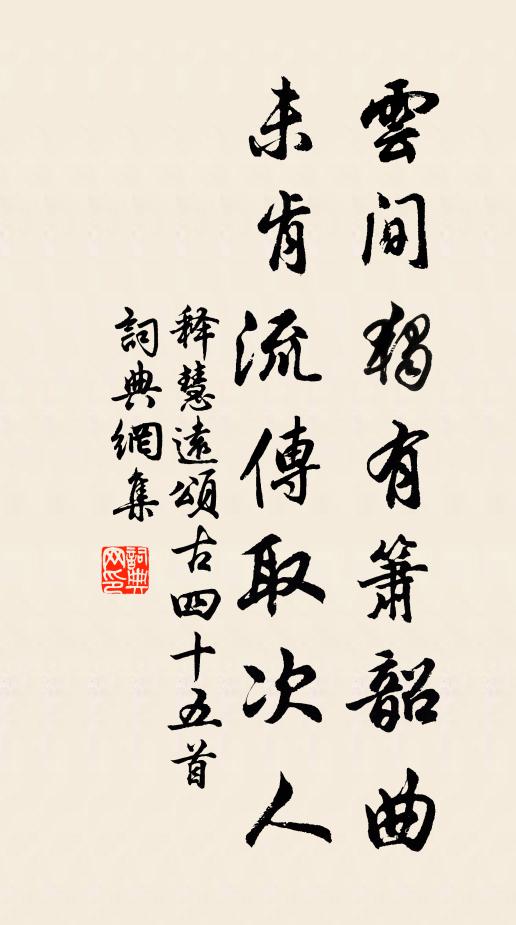 雲間獨有簫韶曲
未肯流傳取次人
释慧遠頌古四十五首
詞典網集
詞典网印